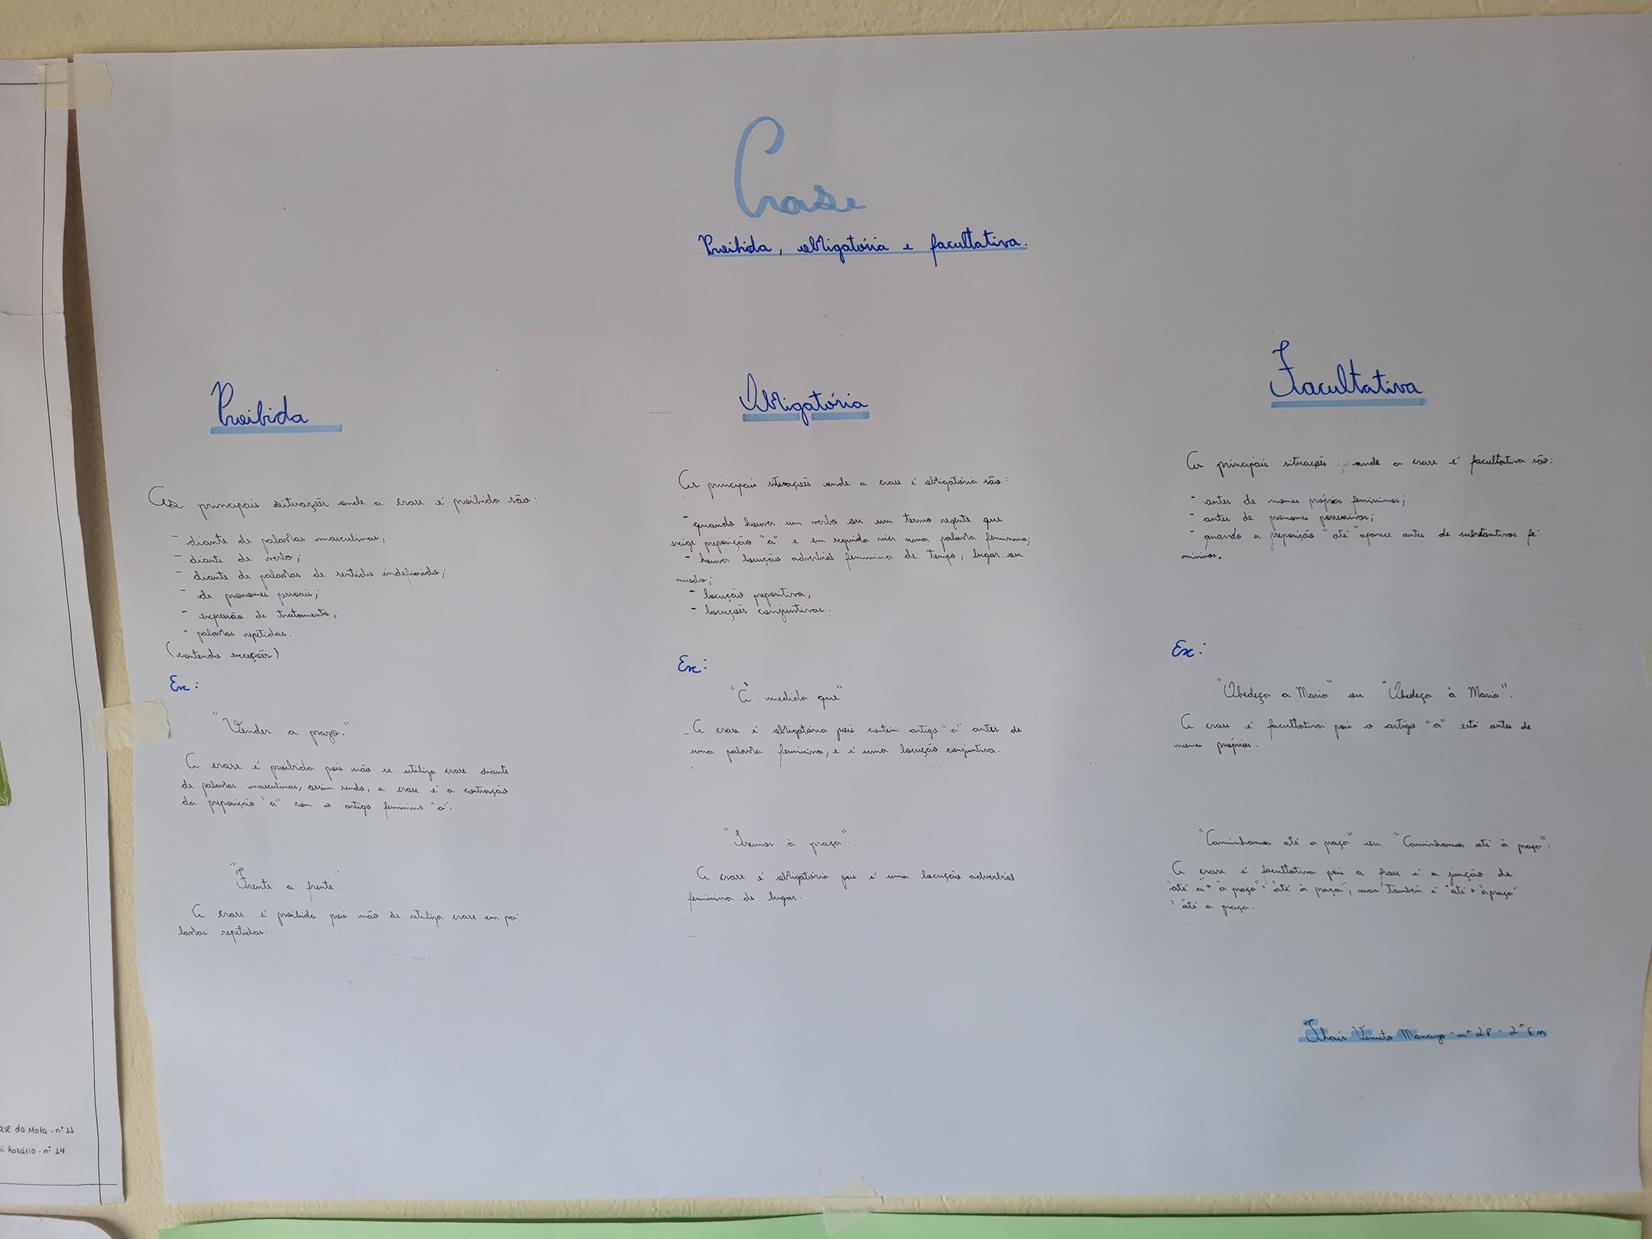 Crase
Proibida, obrigatória e facultativa.
Proibida
As principais situações onde a crase é proibida são:
- diante de palavras masculinas;
- diante de verbo;
- diante de palavras de sentido indefinido;
- de pronomes pessoais;
- expressão de tratamento;
- palavras repetidas.
(contendo exceções)
Ex:
"Vender a prazo."
A crase é proibida pois não se utiliza crase diante
de palavras masculinas, assim sendo, a crase é a contração
da preposição "a" com o artigo feminino "a".
"Frente a frente."
A crase é proibida pois não se utiliza crase em pa-
lavras repetidas.
Obrigatória
As principais situações onde a crase é obrigatória são:
- quando houver um verbo ou um termo regente que
exige preposição "a" e em seguida vier uma palavra feminina;
- houver locução adverbial feminina de tempo, lugar ou
modo;
- locução prepositiva;
- locuções conjuntivas.
Ex:
"À medida que".
A crase é obrigatória pois contém artigo "a" antes de
uma palavra feminina, e é uma locução conjuntiva.
"Iremos à praça".
A crase é obrigatória pois é uma locução adverbial
feminina de lugar.
Facultativa
As principais situações onde a crase é facultativa são:
- antes de nomes próprios femininos;
- antes de pronomes possessivos;
- quando a preposição "até" aparece antes de substantivos fe-
mininos.
Ex:
"Obedeça a Maria" ou "Obedeça à Maria".
A crase é facultativa pois o artigo "a" está antes de
nomes próprios.
"Caminhamos até a praça" ou "Caminhamos até à praça".
A crase é facultativa pois a frase é a junção de
"até a" + "a praça" = "até à praça", mas também é "até + a praça"
= "até a praça.
Thais Mancuzo - nº 28 - 2º EM
ase da Mota - nº 11
Rozário - nº 14